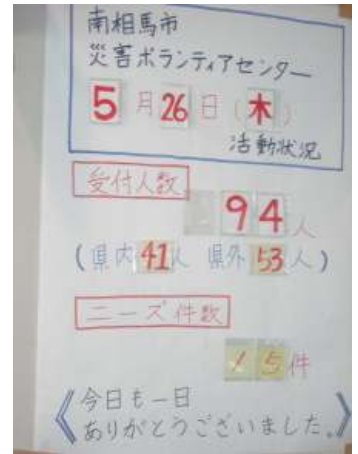 南相馬市
災害ボランティアセンター
5月26日(木)
活動状況
受付人数
94人
(県内41人 県外53人)
ニーズ件数
15件
《今日も一日
ありがとうございました。》